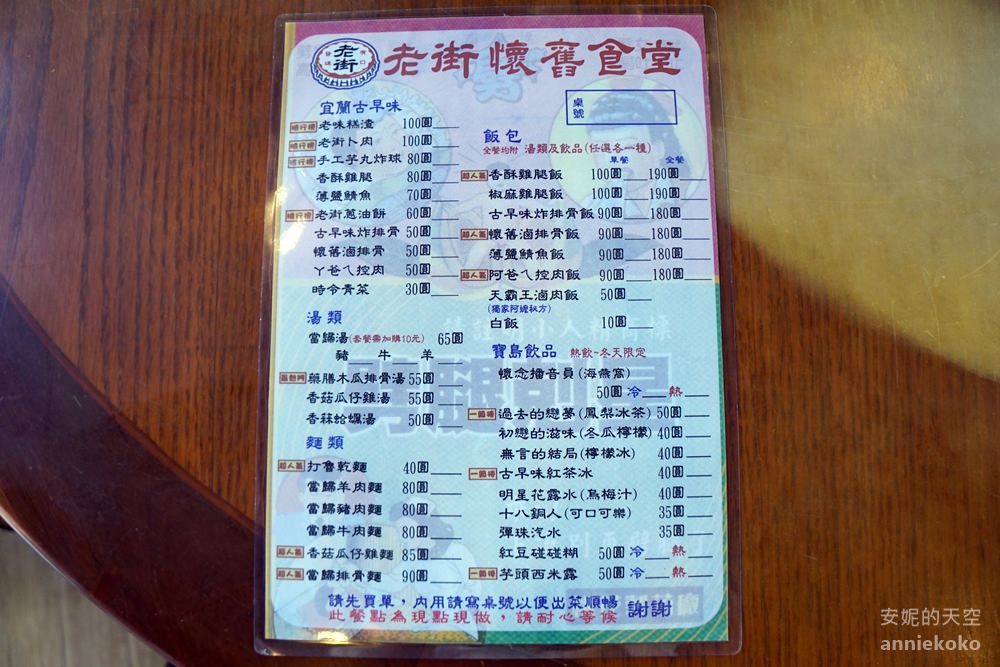 老街
老街懷舊食堂
桌號
宜蘭古早味
老味糕渣 100圓
老街卜肉 100圓
手工芋丸炸球 80圓
香酥雞腿 80圓
薄鹽鯖魚 70圓
老街蔥油餅 60圓
古早味炸排骨 50圓
懷舊滷排骨 50圓
丫爸ㄟ控肉 50圓
時令青菜 30圓
湯類
當歸湯(套餐需加購10元) 65圓
豬 牛 羊
藥膳木瓜排骨湯 55圓
香菇瓜仔雞湯 55圓
香蒜蛤蠣湯 50圓
麵類
超人氣 打魯乾麵 40圓
當歸羊肉麵 80圓
當歸豬肉麵 80圓
當歸牛肉麵 80圓
超人氣 香菇瓜仔雞麵 85圓
超人氣 當歸排骨麵 90圓
飯包
全餐均附 湯類及飲品(任選各一種)
單餐 全餐
超人氣 香酥雞腿飯 100圓 190圓
椒麻雞腿飯 100圓 190圓
古早味炸排骨飯 90圓 180圓
超人氣 懷舊滷排骨飯 90圓 180圓
薄鹽鯖魚飯 90圓 180圓
超人氣 阿爸ㄟ控肉飯 90圓 180圓
天霸王滷肉飯 50圓
(獨家阿嬤秘方)
白飯 10圓
寶島飲品 熱飲~冬天限定
懷念播音員(海燕窩)
50圓 冷 熱
一級棒 過去的戀夢(鳳梨冰茶) 50圓
初戀的滋味(冬瓜檸檬) 40圓
無言的結局(檸檬冰) 40圓
一級棒 古早味紅茶冰 40圓
明星花露水(烏梅汁) 40圓
十八銅人(可口可樂) 35圓
彈珠汽水 35圓
紅豆碰碰糊 50圓 冷 熱
一級棒 芋頭西米露 50圓 冷 熱
請先買單，內用請寫桌號以便出菜順暢
此餐點為現點現做，請耐心等候
謝謝
安妮的天空
anniekoko